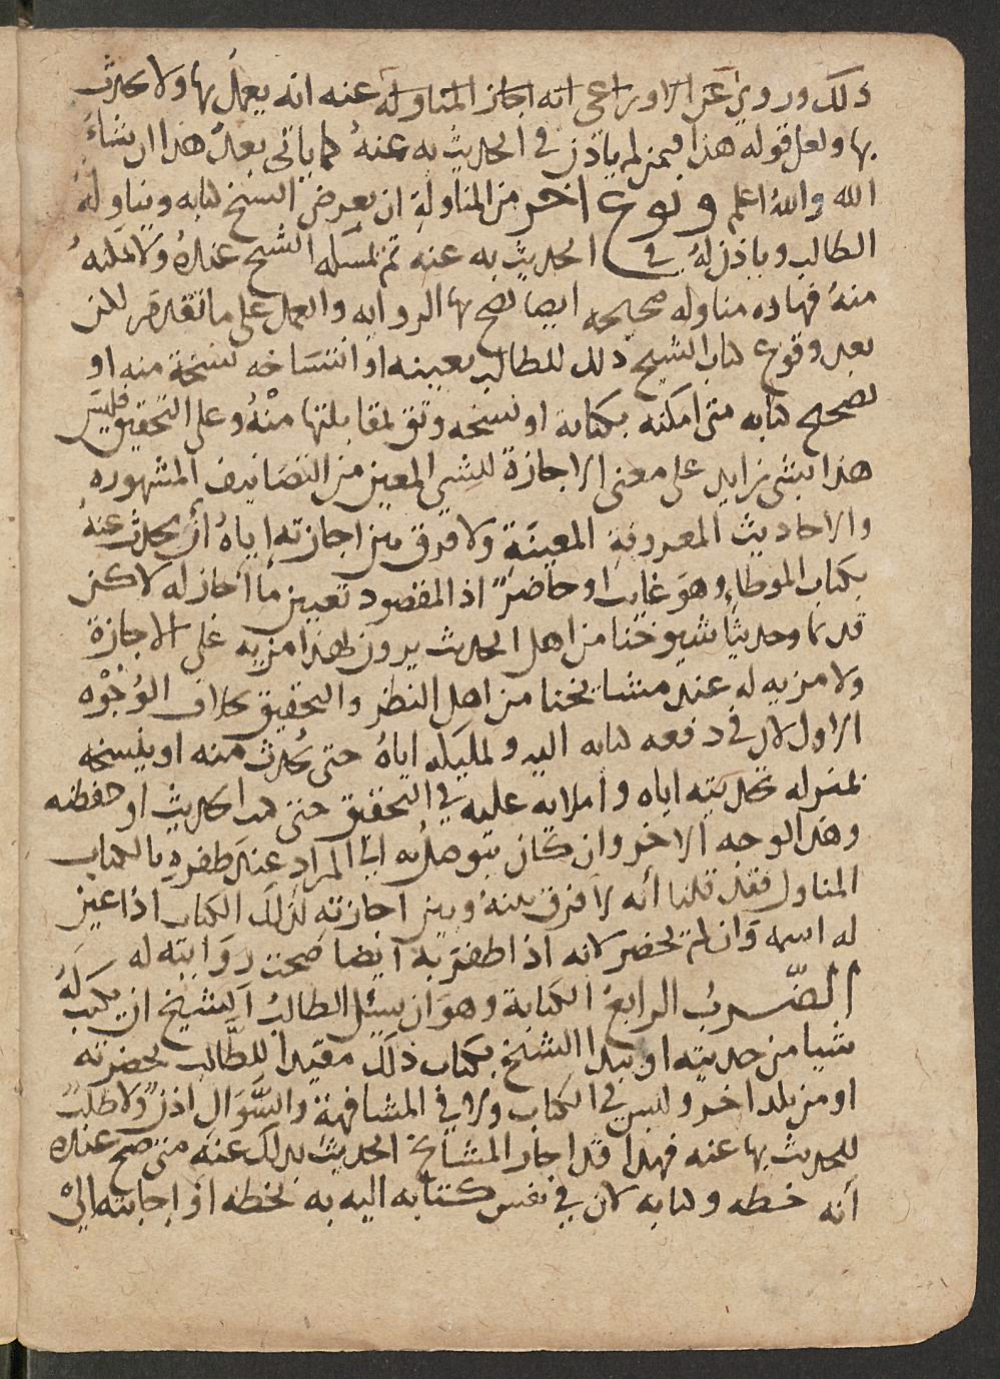 ذلك وروي عن الاوزاعي انه اجاز المناولة عنه انه يعمل بها ولا يحدث
بها ولعل قوله هذا فيمن لم ياذن في الحديث به عنه كما ياتي بعد هذا ان شاء
الله والله اعلم ونوع اخر من المناولة ان يعرض الشيخ كتابه ويناوله
الطالب وياذن له في الحديث به عنه ثم يمسكه الشيخ عنده ولا يمكنه
منه فهاذه مناولة صحيحة ايضا تصح بها الرواية والعمل على ما تقدم لكن
بعد وقوع كتاب الشيخ ذلك للطالب بعينه او انتساخه نسخة منه او
تصحيح كتابه متى امكنه بكتابة او نسخه وثق بمقابلتها منه وعلى التحقيق فليس
هذا بشي زايد على معنى الاجازة للشي المعين من التصانيف المشهورة
والاحاديث المعروفة المعينة ولا فرق بين اجازته اياه ان يحدث عنه
بكتاب الموطاء وهو غايب او حاضر اذ المقصود تعيين ما اجاز له لاكن
قديما وحديثا شيوخنا من اهل الحديث يرون لهذا مزية على الاجازة
ولا مزية له عند مشايخنا من اهل النظر والتحقيق بخلاف الوجوه
الاول لان في دفعه كتابه اليه وتمليكه اياه حتى يحدث منه او ينسخه
بمنزلة تحديثه اياه واملائه عليه في التحقيق حتى هذا الحديث او حفظه
وهذا الوجه الاخر وان كان يتوصل به الى المراد عند ظفره بالكتاب
المناول فقد قلنا انه لا فرق بينه وبين اجازته لذلك الكتاب اذا عين
له اسمه وان لم يحضر لانه اذا ظفر به ايضا صحت روايته له
الضرب الرابع الكتابة وهو ان يسئل الطالب الشيخ ان يكتب له
شيا من حديثه او يبدا الشيخ بكتاب ذلك مفيدا للطالب بحضرته
او من بلد اخر وليس في الكتاب ولا في المشافهة والسوال اذن ولا طلب
للحديث بها عنه فهذا قد اجاز المشايخ الحديث بذلك عنه متى صح عنده
انه خطه وكتابه لان في نفس كتابه اليه به بخطه او اجابته الى